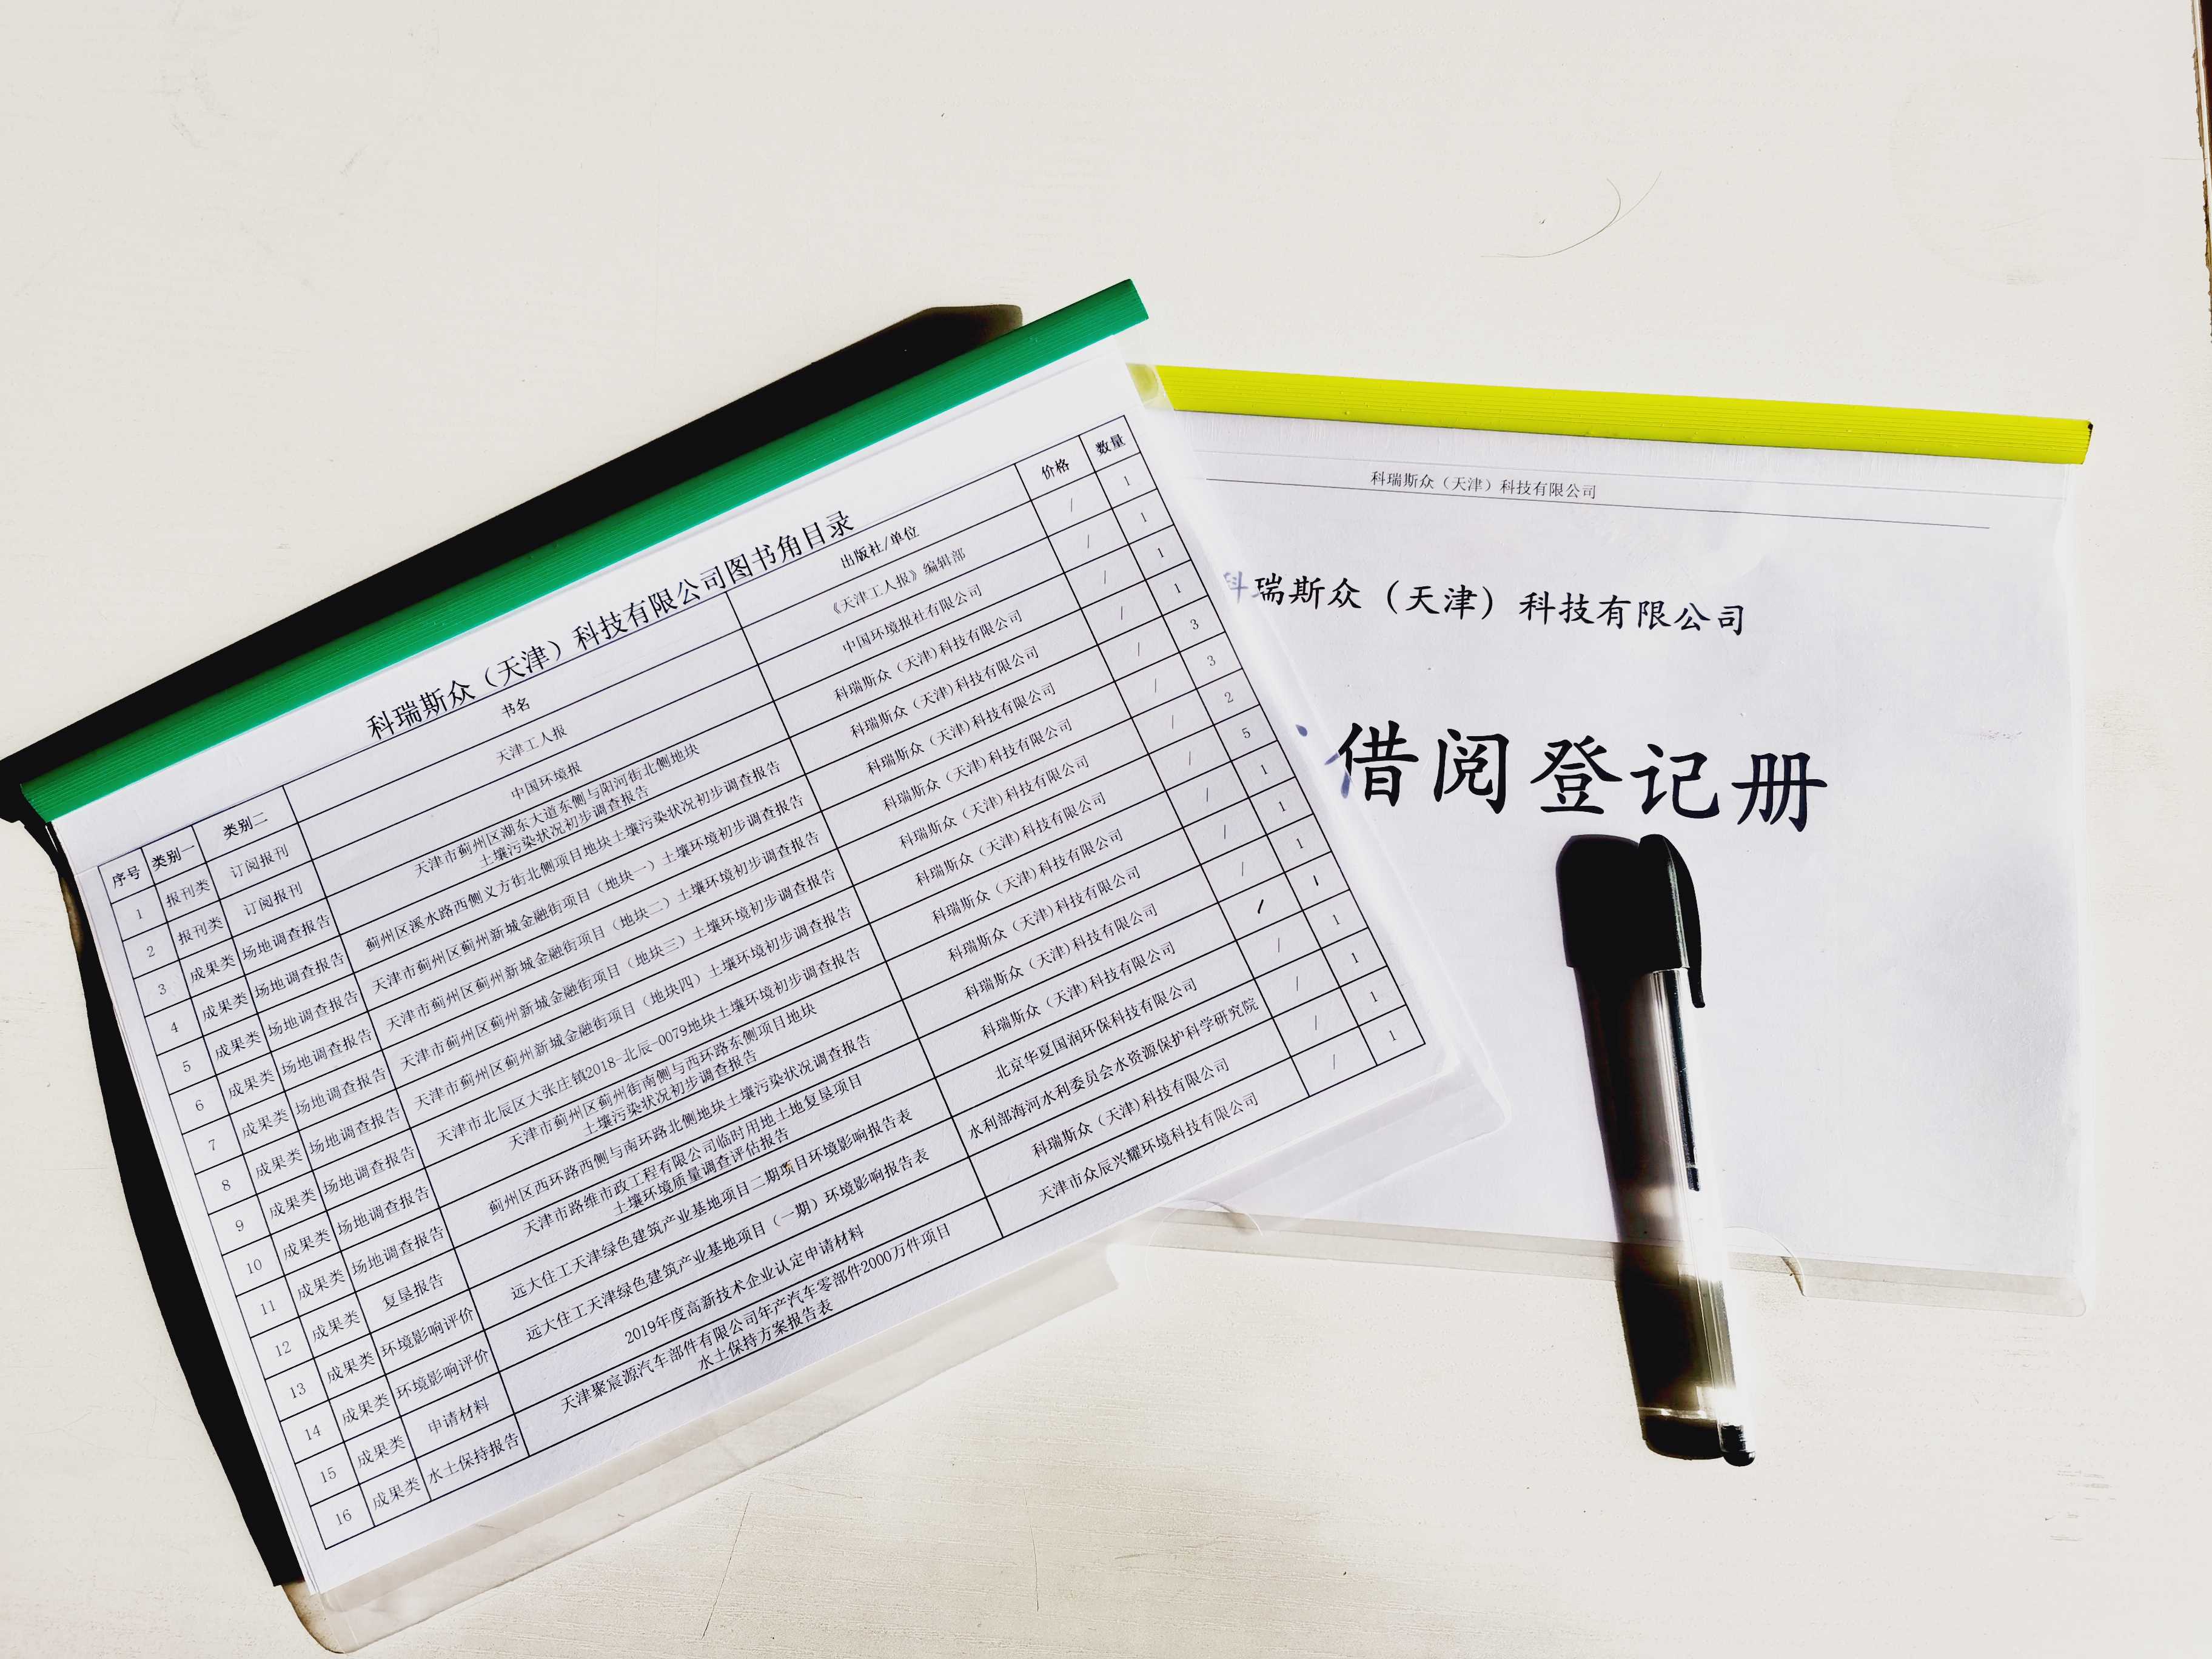 科瑞斯众（天津）科技有限公司图书角目录
序号 类别一 类别二 书名 出版社/单位 价格 数量
1 报刊类 订阅报刊 天津工人报 《天津工人报》编辑部 / 1
2 报刊类 订阅报刊 中国环境报 中国环境报社有限公司 / 1
3 成果类 场地调查报告 天津市蓟州区湖东大道东侧与阳河街北侧地块
土壤污染状况初步调查报告 科瑞斯众（天津）科技有限公司 / 1
4 成果类 场地调查报告 蓟州区溪水路西侧义方街北侧项目地块土壤污染状况初步调查报告 科瑞斯众（天津）科技有限公司 / 1
5 成果类 场地调查报告 天津市蓟州区蓟州新城金融街项目（地块一）土壤环境初步调查报告 科瑞斯众（天津）科技有限公司 / 3
6 成果类 场地调查报告 天津市蓟州区蓟州新城金融街项目（地块二）土壤环境初步调查报告 科瑞斯众（天津）科技有限公司 / 3
7 成果类 场地调查报告 天津市蓟州区蓟州新城金融街项目（地块三）土壤环境初步调查报告 科瑞斯众（天津）科技有限公司 / 2
8 成果类 场地调查报告 天津市蓟州区蓟州新城金融街项目（地块四）土壤环境初步调查报告 科瑞斯众（天津）科技有限公司 / 5
9 成果类 场地调查报告 天津市北辰区大张庄镇2018-北辰-0079地块土壤环境初步调查报告 科瑞斯众（天津）科技有限公司 / 1
10 成果类 场地调查报告 天津市蓟州区蓟州街南侧与西环路东侧项目地块
土壤污染状况初步调查报告 科瑞斯众（天津）科技有限公司 / 1
11 成果类 场地调查报告 蓟州区西环路西侧与南环路北侧地块土壤污染状况调查报告 科瑞斯众（天津）科技有限公司 / 1
12 成果类 复垦报告 天津市路维市政工程有限公司临时用地土地复垦项目
土壤环境质量调查评估报告 科瑞斯众（天津）科技有限公司 / 1
13 成果类 环境影响评价 远大住工天津绿色建筑产业基地项目二期项目环境影响报告表 北京华夏国润环保科技有限公司 / 1
14 成果类 环境影响评价 远大住工天津绿色建筑产业基地项目（一期）环境影响报告表 水利部海河水利委员会水资源保护科学研究院 / 1
15 成果类 申请材料 2019年度高新技术企业认定申请材料 科瑞斯众（天津）科技有限公司 / 1
16 成果类 水土保持报告 天津聚宸源汽车部件有限公司年产汽车零部件2000万件项目
水土保持方案报告表 天津市众辰兴耀环境科技有限公司 / 1
科瑞斯众（天津）科技有限公司
科瑞斯众（天津）科技有限公司
借阅登记册